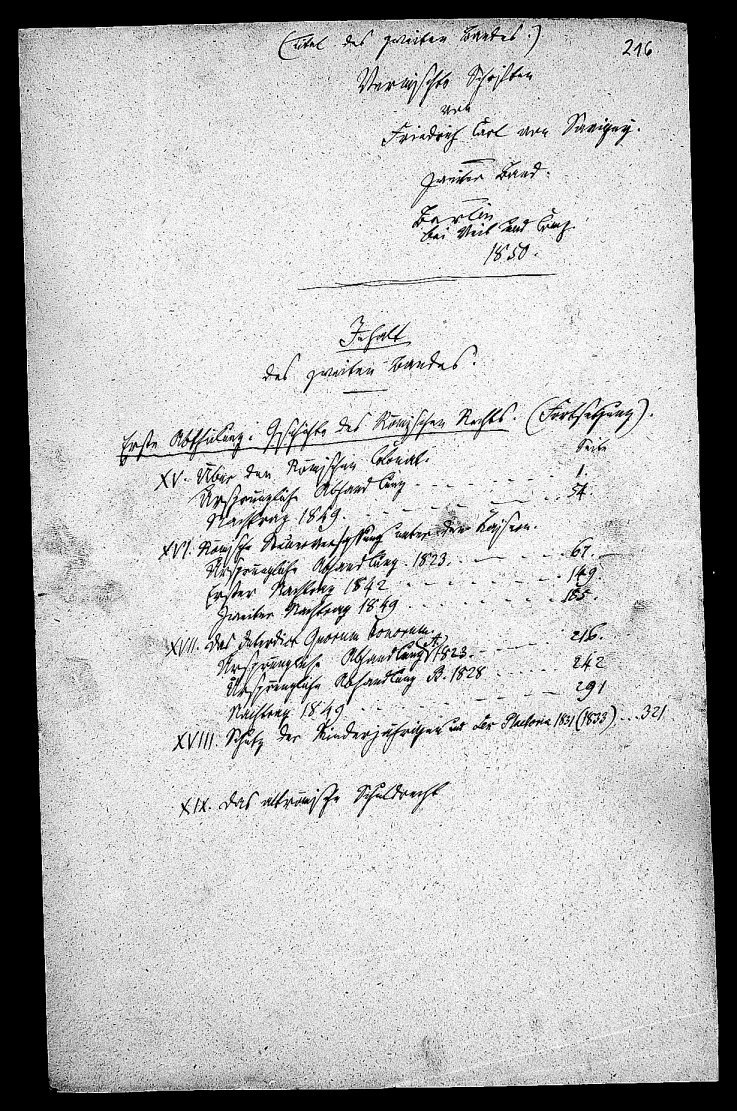 (Titel des zweiten Bandes.)
216
Vermischte Schriften
von
Friedrich Carl von Savigny.
Zweiter Band.
Berlin
bei Veit und Comp.
1850.
Inhalt
des zweiten Bandes.
Erste Abtheilung. Geschichte des Römischen Rechts. (Fortsetzung).
Seite
XV. Über den Römischen Colonat.
Ursprüngliche Abhandlung - - - - - - 1.
Nachtrag 1849 - - - - - - 54.
XVI. Römische Steuerverfassung unter den Kaisern.
Ursprüngliche Abhandlung. 1823. - - - - 67.
Erster Nachtrag 1842 - - - - - - 149.
Zweiter Nachtrag 1849 - - - - - - 185.
XVII. Das Interdict Quorum bonorum.
Ursprüngliche Abhandlung A. 1823. - - - - 216.
Ursprüngliche Abhandlung B. 1828 - - - - 242
Nachtrag. 1849 - - - - - - 291
XVIII. Schutz der Minderjährigen und Lex Plaetoria 1831 (1833) ... 321
XIX. Das altrömische Schuldrecht